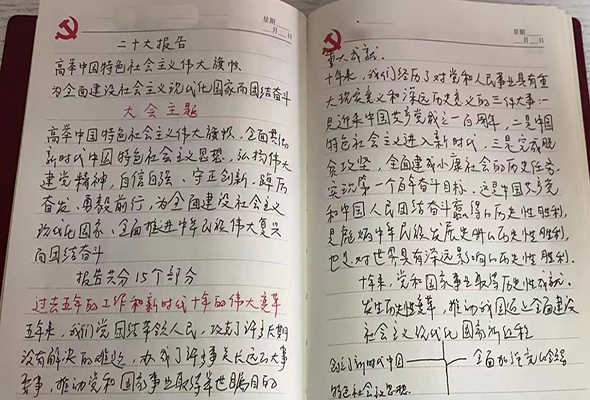 星期
月 日
二十大报告
高举中国特色社会主义伟大旗帜
为全面建设社会主义现代化国家而团结奋斗
大会主题
高举中国特色社会主义伟大旗帜、全面贯彻
新时代中国特色社会主义思想，弘扬伟大
建党精神，自信自强、守正创新，踔厉
奋发、勇毅前行，为全面建设社会主义
现代化国家、全面推进中华民族伟大复兴
而团结奋斗
报告共分15个部分
过去五年的工作和新时代十年的伟大变革
五年来，我们党团结带领人民，攻克了许多长期
没有解决的难题，办成了许多事关长远的大事
要事，推动党和国家事业取得举世瞩目的
星期
月 日
重大成就。
十年来，我们经历了对党和人民事业具有重
大现实意义和深远历史意义的三件大事：一
是迎来中国共产党成立一百周年，二是中国
特色社会主义进入新时代，三是完成脱
贫攻坚，全面建成小康社会的历史任务，
实现第一个百年奋斗目标。这是中国共产党
和中国人民团结奋斗赢得的历史性胜利，
是彪炳中华民族发展史册的历史性胜利，
也是对世界具有深远影响的历史性胜利。
十年来，党和国家事业取得历史性成就、
发生历史性变革，推动我国迈上全面建设
社会主义现代化国家新征程
创立了新时代中国 全面加强党的全面
特色社会主义思想